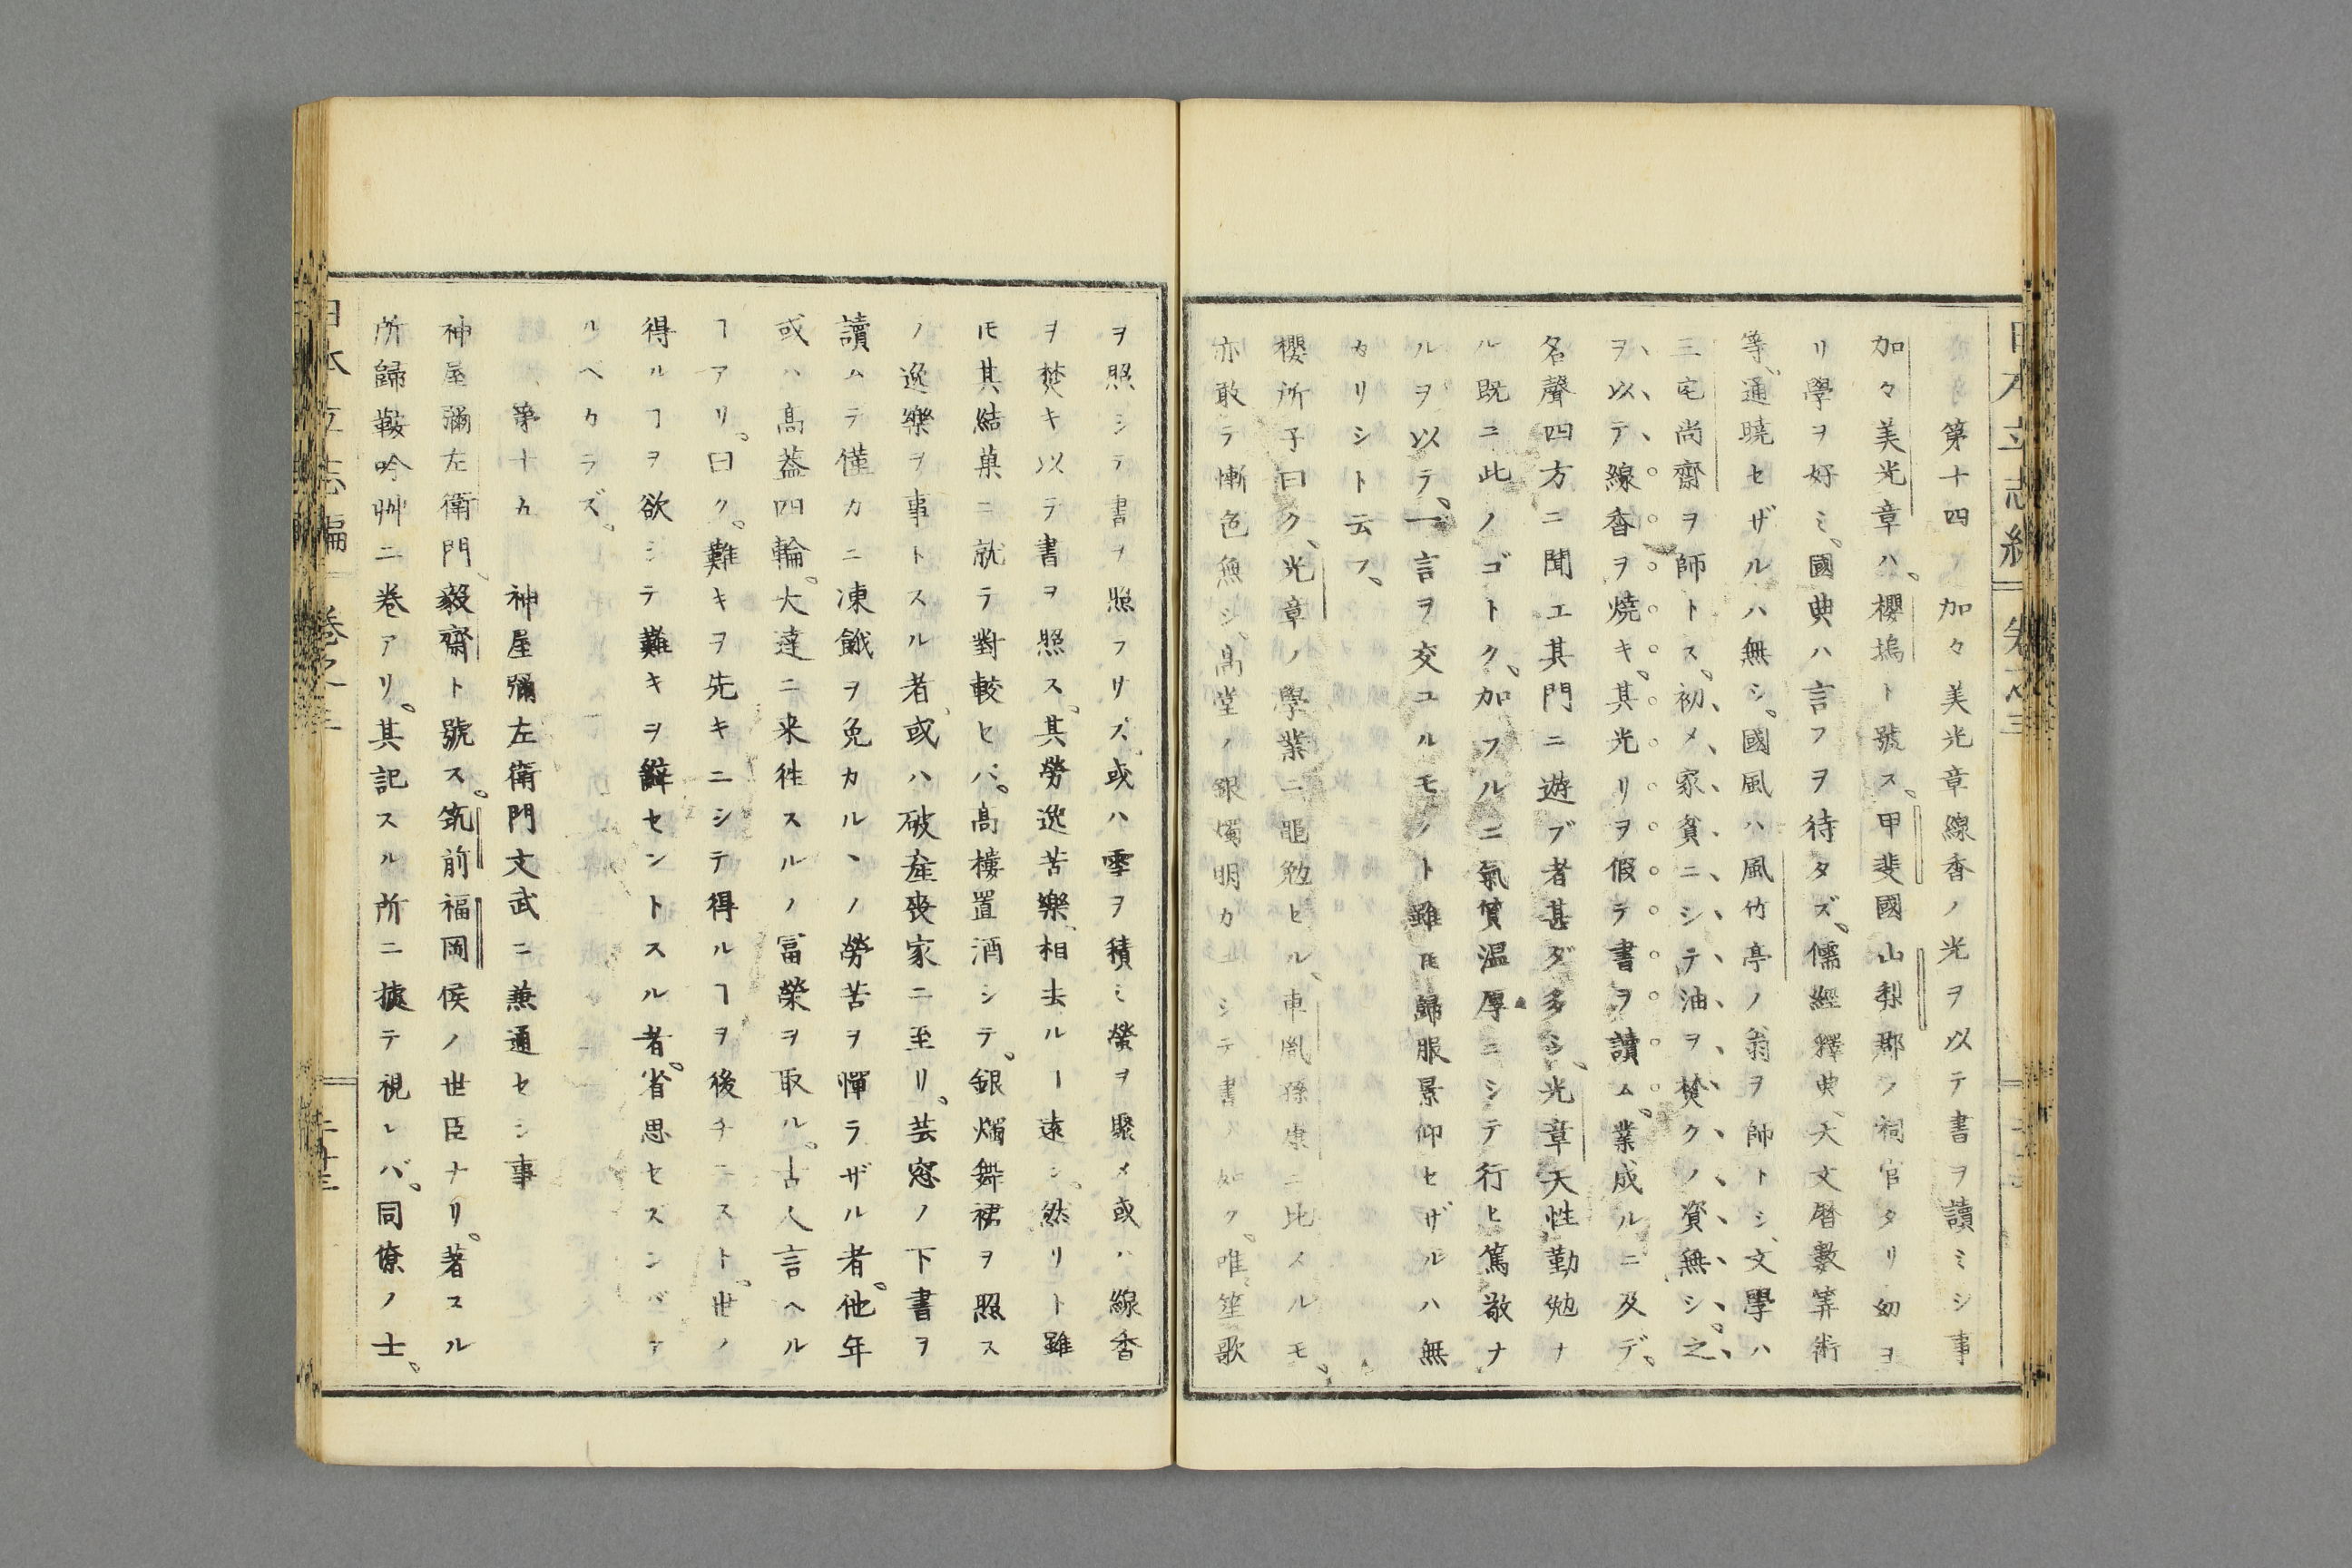 日本立志編 卷之三
第十四 加々美光章線香ノ光ヲ以テ書ヲ讀ミシ事
加々美光章ハ、櫻塢ト號ス、甲斐國山梨郡ノ祠官タリ幼ヨ
リ學ヲ好ミ、國典ハ言フヲ待タズ、儒經釋典、天文曆數筭術
等、通曉セザルハ無シ、國風ハ風竹亭ノ翁ヲ師トシ、文學ハ
三宅尚齋ヲ師トス、初メ家貧ニシテ油ヲ焚クノ資無シ、之
ヲ以テ線香ヲ燒キ、其光リヲ假テ書ヲ讀ム、業成ルニ及デ、
名聲四方ニ聞エ其門ニ遊ブ者甚ダ多シ、光章天性勤勉ナ
ル既ニ此ノゴトク、加フルニ氣質温厚ニシテ行ヒ篤敬ナ
ルヲ以テ、一言ヲ交ユルモノト雖𪜈歸服景仰セザルハ無
カリシト云フ、
櫻所子曰ク、光章ノ學業ニ黽勉セル、車胤孫康ニ比スルモ、
亦敢テ慚色無シ、高堂ノ銀燭明カニシテ書ス如ク、唯笙歌
ヲ照シテ書ヲ照フサズ、或ハ雪ヲ積ミ螢ヲ聚メ或ハ線香
ヲ焚キ以テ書ヲ照ス、其勞逸苦樂、相去ルヿ遠シ、然リト雖
𪜈其結菓ニ就テ對較セバ、高樓置酒シテ、銀燭舞裙ヲ照ス
ノ逸樂ヲ事トスル者、或ハ破產喪家ニ至リ、芸窓ノ下書ヲ
讀ムテ僅カニ凍餓ヲ免カルヽノ勞苦ヲ憚ラザル者、他年
或ハ高葢四輪、大達ニ来徃スルノ冨榮ヲ取ル、古人言ヘル
ヿアリ、曰ク、難キヲ先キニシテ得ルヿヲ後チニスト、世ノ
得ルヿヲ欲シテ難キヲ辭セントスル者、省思セズンバア
ルベカラズ、
第十五 神屋彌左衛門文武ニ兼通セシ事
神屋彌左衛門、毅齋ト號ス、筑前福岡侯ノ世臣ナリ、著スル
所歸鞍吟艸二卷アリ、其記スル所ニ據テ視レバ、同僚ノ士、
日本立志編 卷之三